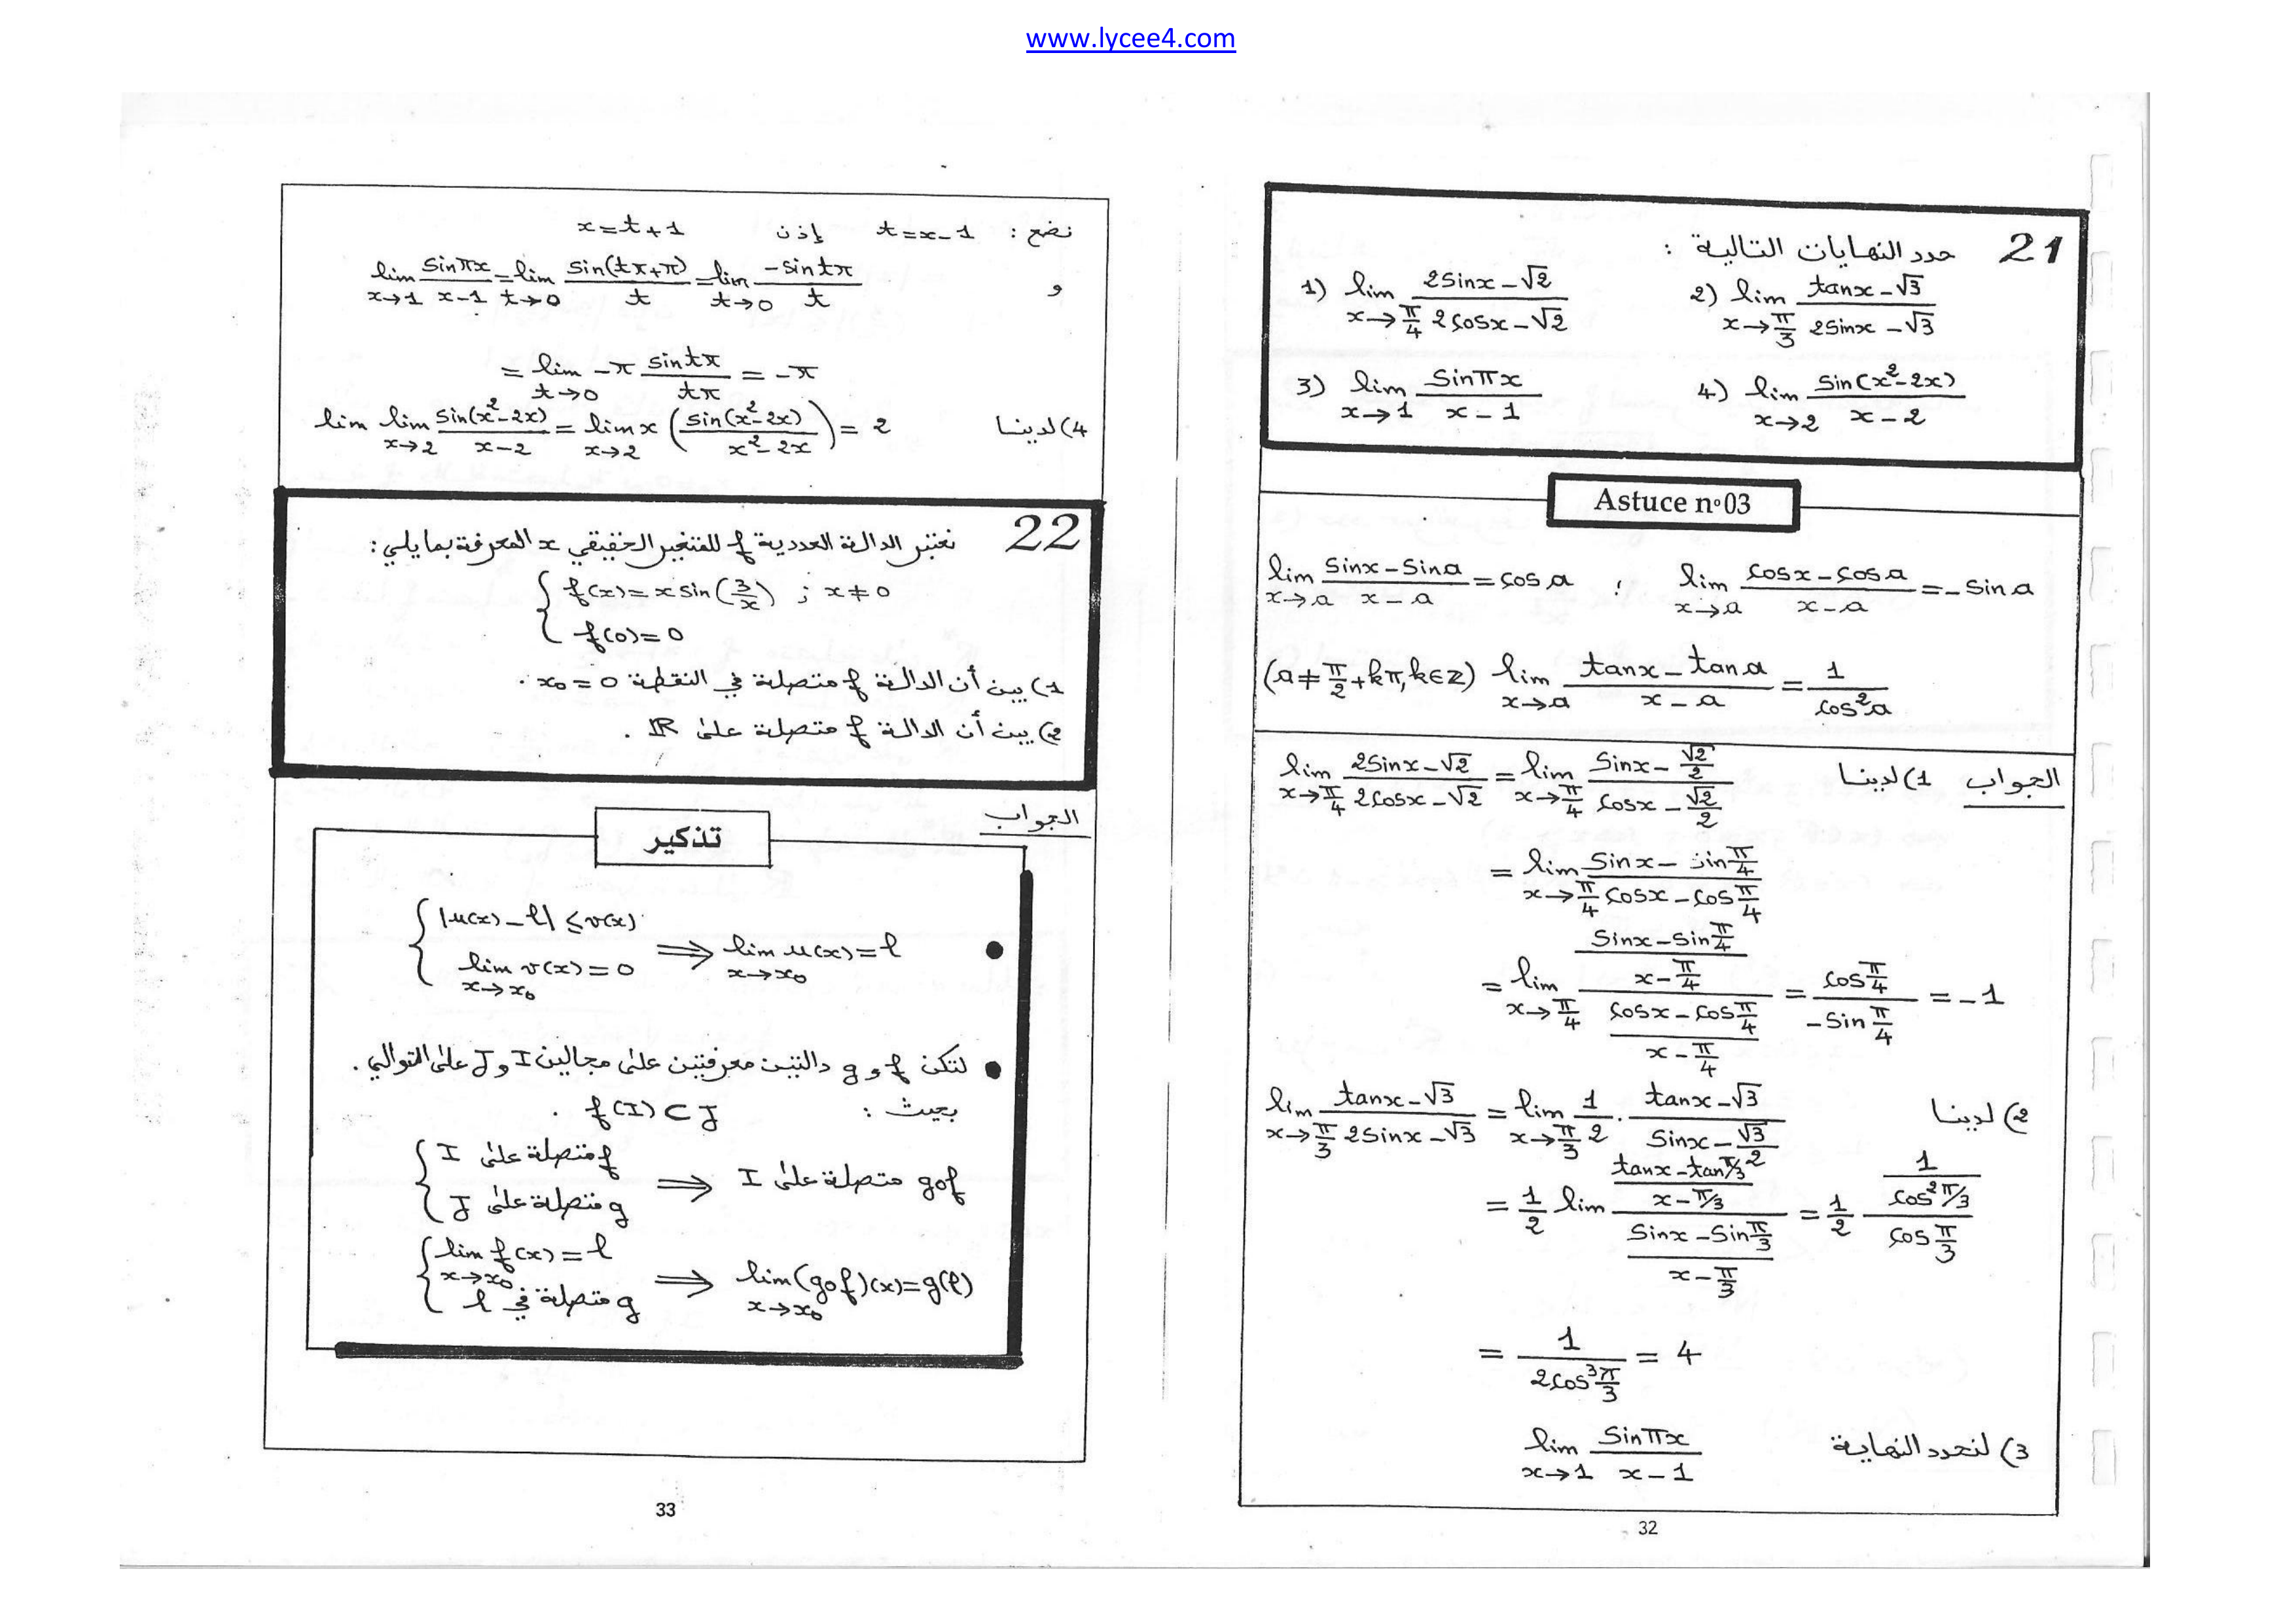 www.lycee4.com
21 حدد النهايات التالية :
1) lim_{x→π/4} (2sinx-√2)/(2cosx-√2)   2) lim_{x→π/3} (tanx-√3)/(2sinx-√3)
3) lim_{x→1} sinπx/(x-1)   4) lim_{x→2} sin(x²-2x)/(x-2)
Astuce n°03
lim_{x→a} (sinx-sina)/(x-a) = cosa ; lim_{x→a} (cosx-cosa)/(x-a) = -sina
(a≠π/2+kπ, k∈ℤ) lim_{x→a} (tanx-tana)/(x-a) = 1/cos²a
الجواب 1) لدينا lim_{x→π/4} (2sinx-√2)/(2cosx-√2) = lim_{x→π/4} (sinx-√2/2)/(cosx-√2/2)
= lim_{x→π/4} (sinx-sinπ/4)/(cosx-cosπ/4)
= lim_{x→π/4} ((sinx-sinπ/4)/(x-π/4))/((cosx-cosπ/4)/(x-π/4)) = (cosπ/4)/(-sinπ/4) = -1
2) لدينا lim_{x→π/3} (tanx-√3)/(2sinx-√3) = lim_{x→π/3} 1/2 . (tanx-√3)/(sinx-√3/2)
= 1/2 lim ((tanx-tanπ/3)/(x-π/3))/((sinx-sinπ/3)/(x-π/3)) = 1/2 (1/cos²π/3)/(cosπ/3)
= 1/(2cos³π/3) = 4
3) لنحدد النهاية lim_{x→1} sinπx/(x-1)
32
نضع : t=x-1 إذن x=t+1
و lim_{x→1} sinπx/(x-1) = lim_{t→0} sin(tπ+π)/t = lim_{t→0} -sintπ/t
= lim_{t→0} -π sintπ/tπ = -π
4) لدينا lim lim_{x→2} sin(x²-2x)/(x-2) = lim_{x→2} x (sin(x²-2x)/(x²-2x)) = 2
22 نعتبر الدالة العددية f للمتغير الحقيقي x المعرفة بما يلي:
{ f(x)=x sin(3/x) ; x≠0
f(0)=0
1) بين أن الدالة f متصلة في النقطة x₀=0 .
2) بين أن الدالة f متصلة على ℝ .
الجواب
تذكير
• { |u(x)-l| ≤ v(x) ; lim_{x→x₀} v(x)=0 ⟹ lim_{x→x₀} u(x)=l
• لتكن f و g دالتين معرفيتين على مجالين I و J على التوالي .
بحيث : f(I)⊂J .
{ f متصلة على I ; g متصلة على J ⟹ gof متصلة على I
{ lim_{x→x₀} f(x)=l ; g متصلة في l ⟹ lim_{x→x₀} (gof)(x)=g(l)
33